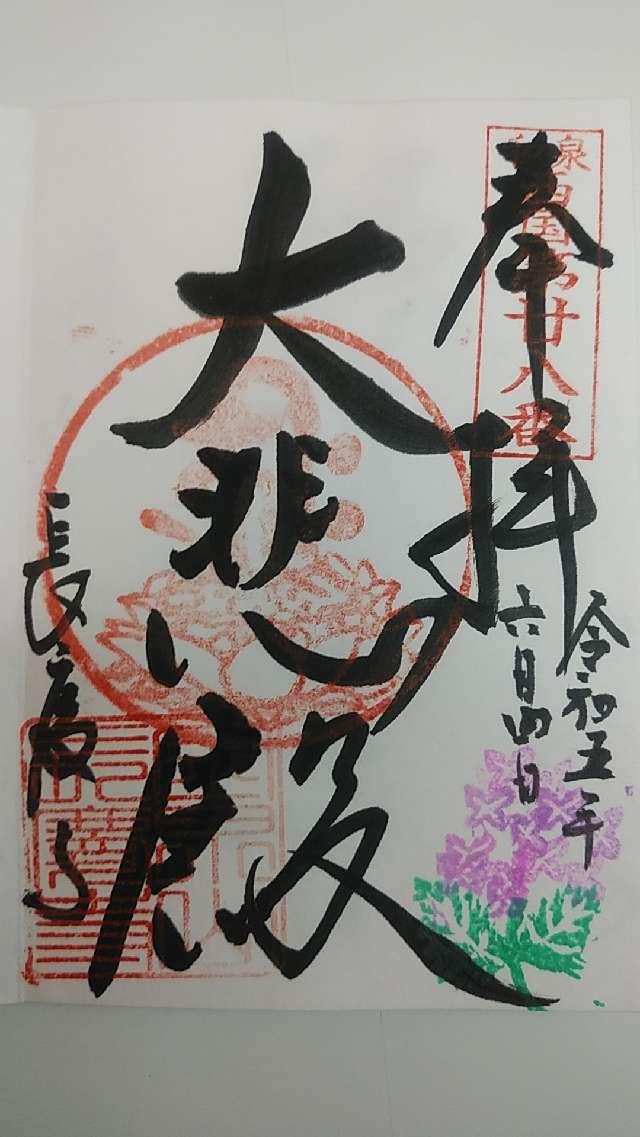 奉拝
和泉
西国第廿八番
令和五年
六月四日
大悲殿
長慶寺